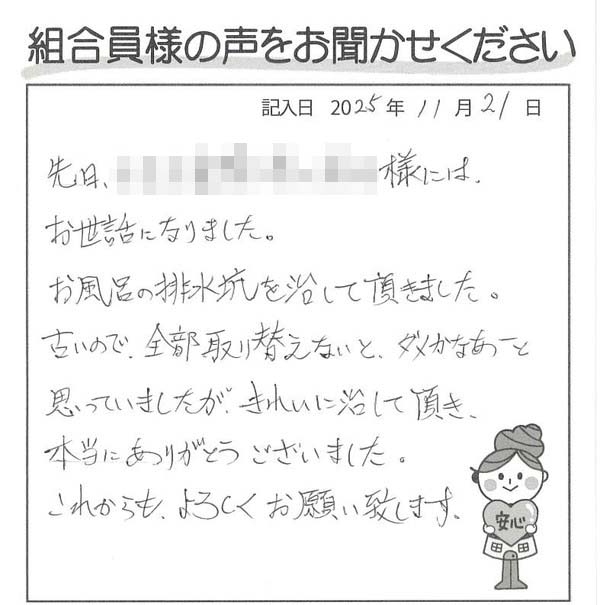 組合員様の声をお聞かせください
記入日 2025年 11月 21日
先日、様には、
お世話になりました。
お風呂の排水坑を治して頂きました。
古いので、全部取り替えないと、ダメかなあーと
思っていましたが、きれいに治して頂き、
本当にありがとうございました。
これからも、よろしくお願い致します。
安心